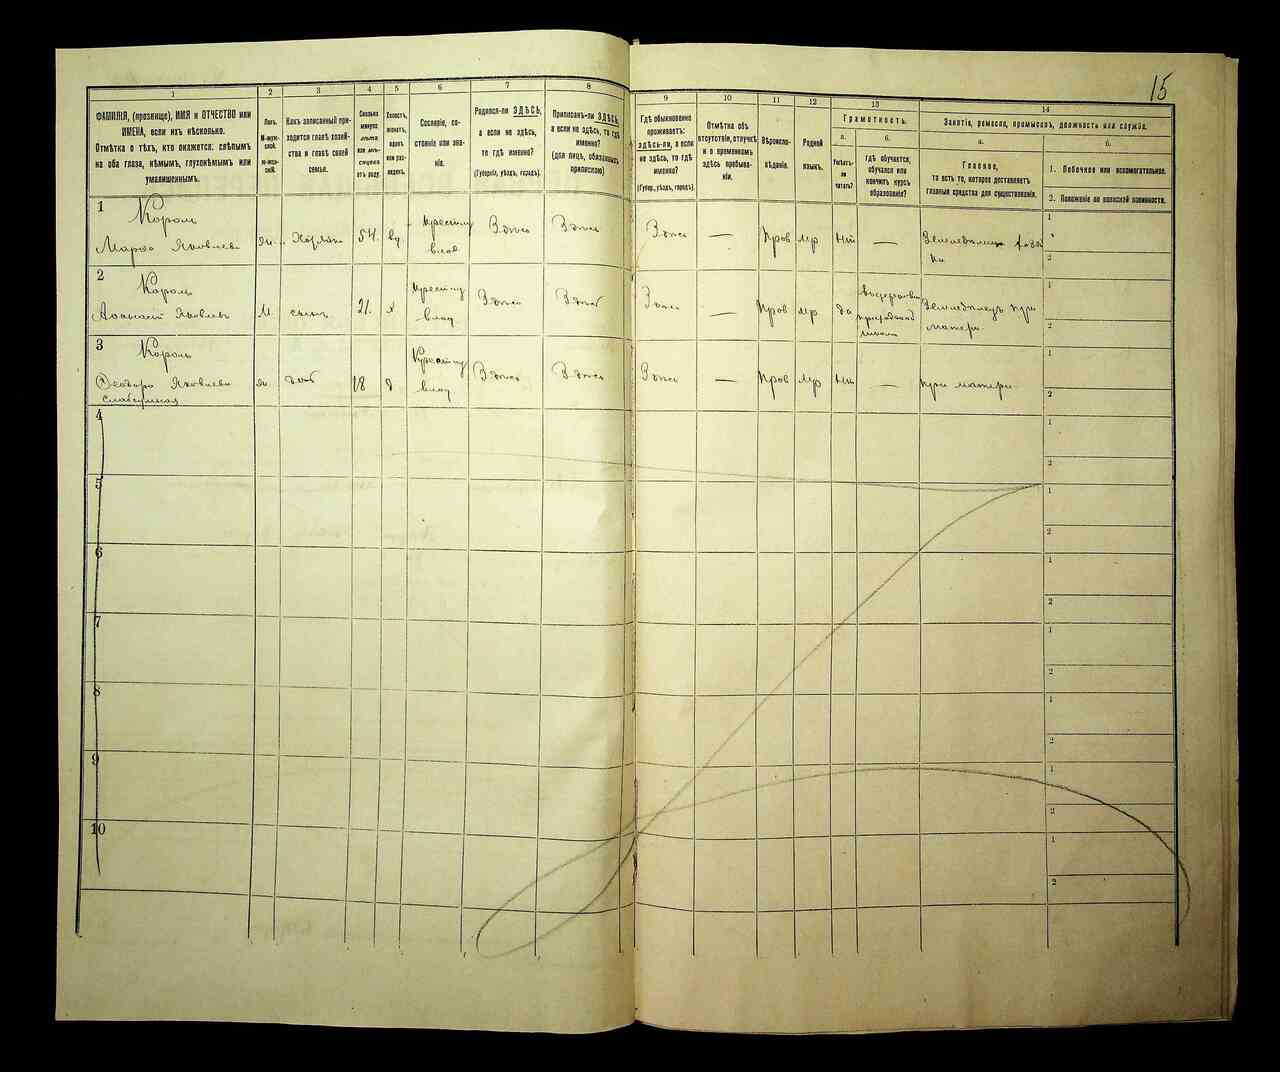 15
1
2
3
4
5
6
7
8
9
10
11
12
13
14
ФАМИЛІЯ, (прозвище), ИМЯ и ОТЧЕСТВО или
ИМЕНА, если ихъ нѣсколько.
Отмѣтка о тѣхъ, кто окажется: слѣпымъ
на оба глаза, нѣмымъ, глухонѣмымъ или
умалишеннымъ.
Полъ.
М-муж-
ской.
Ж-жен-
скій.
Какъ записанный при-
ходится главѣ хозяй-
ства и главѣ своей
семьи.
Сколько
минуло
лѣтъ
или мѣ-
сяцевъ
отъ роду.
Холостъ,
женатъ,
вдовъ
или раз-
веденъ.
Сословіе, со-
стояніе или зва-
ніе.
Родился-ли ЗДѢСЬ,
а если не здѣсь,
то гдѣ именно?
(Губернія, уѣздъ, городъ).
Приписанъ-ли ЗДѢСЬ,
а если не здѣсь, то гдѣ
именно?
(Для лицъ, обязанныхъ
припискою)
Гдѣ обыкновенно
проживаетъ:
ЗДѢСЬ-ЛИ, а если
не здѣсь, то гдѣ
именно?
(Губер., уѣздъ, городъ).
Отмѣтка объ
отсутствіи, отлучкѣ
и о временномъ
здѣсь пребыва-
ніи.
Вѣроиспо-
вѣданіе.
Родной
языкъ.
Грамотность.
а.
Умѣетъ-
ли
читать?
б.
гдѣ обучается,
обучался или
кончилъ курсъ
образованія?
Занятіе, ремесло, промыселъ, должность или служба.
а.
Главное,
то есть то, которое доставляетъ
главныя средства для существованія.
б.
1. Побочное или вспомогательное.
2. Положеніе по воинской повинности.
1
Король
Марѳа Яковлева
ж
54
вд
Крестьян
влад
Здѣсь
Здѣсь
Здѣсь
—
Прав
мр
Нѣт
—
1
2
2
Король
Аѳанасій Яковлевъ
М
сынъ
21.
х
Крестьян
влад
Здѣсь
Здѣсь
Здѣсь
—
Прав
мр
да
школа
Земледѣлецъ при
матери
1
2
3
Король
Ѳеодора Яковлева
слабоумная
ж
доч
18
д
Крестьян
влад
Здѣсь
Здѣсь
Здѣсь
—
Прав
мр
Нѣт
—
при матери
1
2
4
1
2
5
1
2
6
1
2
7
1
2
8
1
2
9
1
2
10
1
2